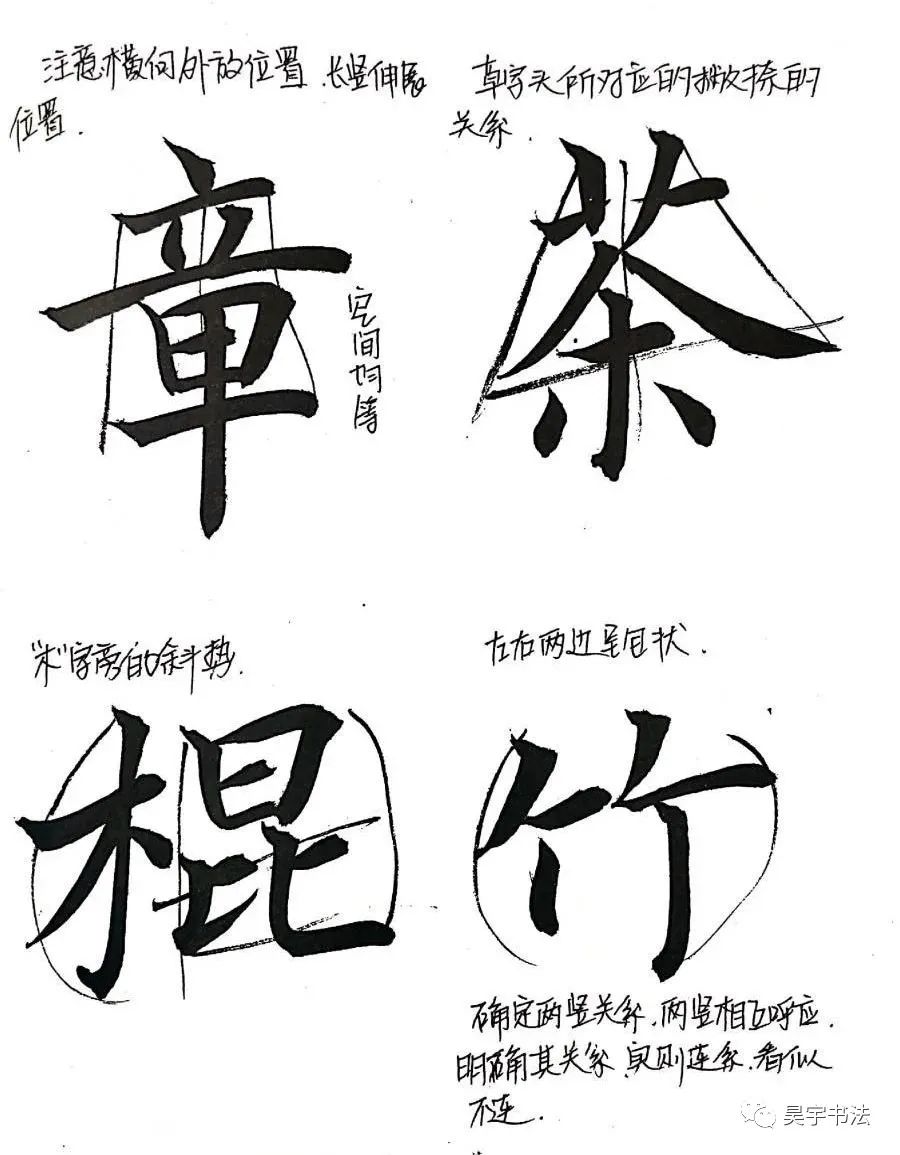 注意横向外放位置.长竖伸展
位置.
章
空间均等
草字头所对应的撇捺的
关系.
茶
"木"字旁的斜势.
棍
左右两边呈包状.
竹
确定两竖关系.两竖相互呼应.
明确其关系.实则连系.看似
不连.
昊宇书法